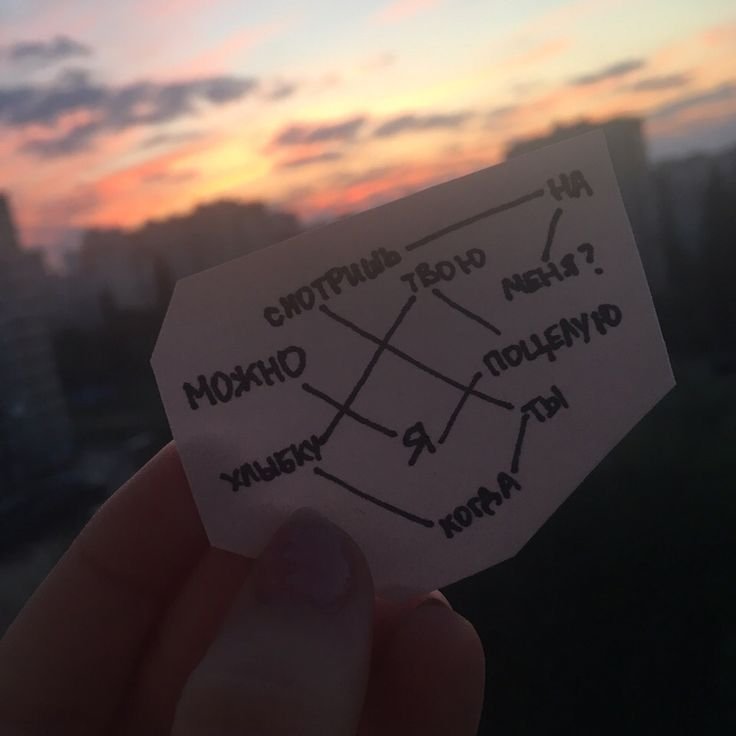 МОЖНО
Я
ПОЦЕЛУЮ
ТВОЮ
УЛЫБКУ
КОГДА
ТЫ
СМОТРИШЬ
НА
МЕНЯ?